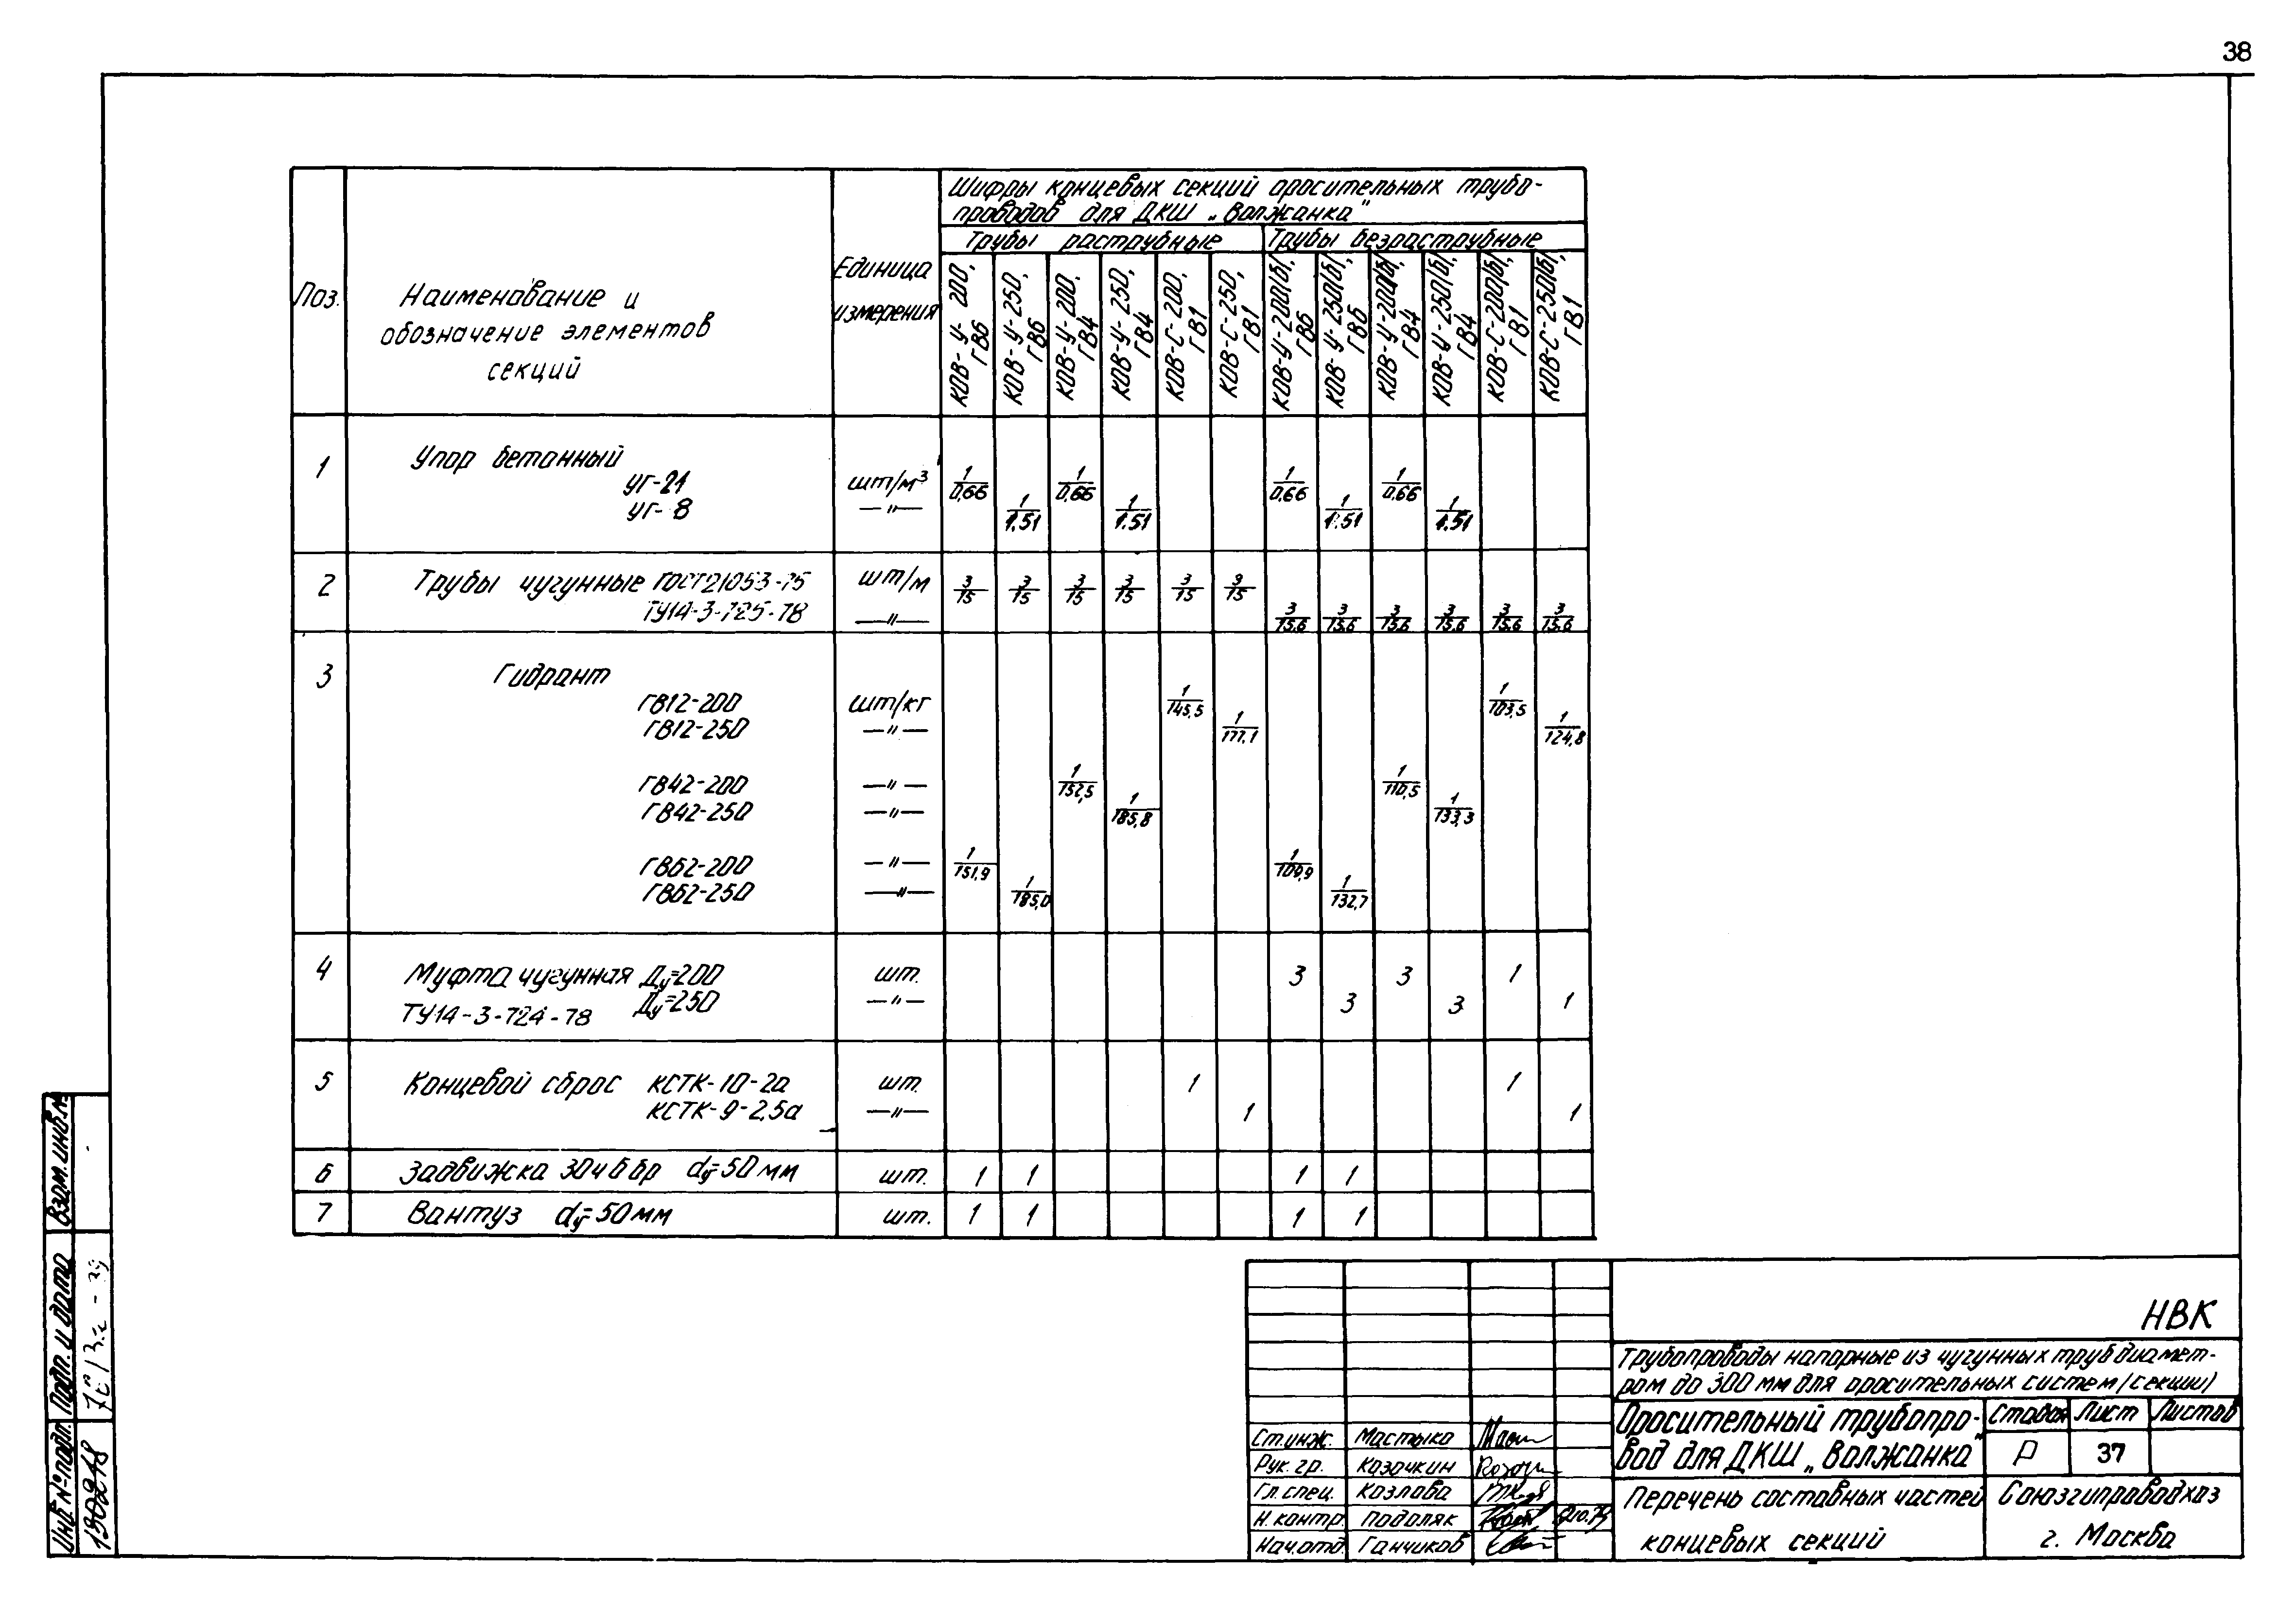 38
Шифры концевых секций оросительных трубо-
проводов для ДКШ „Волжанка"
Трубы раструбные
Трубы безраструбные
Поз.
Наименование и
обозначение элементов
секций
Единица
измерения
КОВ-У-200, ГВ6
КОВ-У-250, ГВ6
КОВ-У-200, ГВ4
КОВ-У-250, ГВ4
КОВ-С-200, ГВ1
КОВ-С-250, ГВ1
КОВ-У-200/б/, ГВ6
КОВ-У-250/б/, ГВ6
КОВ-У-200/б/, ГВ4
КОВ-У-250/б/, ГВ4
КОВ-С-200/б/, ГВ1
КОВ-С-250/б/, ГВ1
1 Упор бетонный
УГ-21 шт/м³ 1/0,66 1/0,66 1/0,66 1/0,66
УГ-8 —"— 1/1.51 1/1.51 1/1.51 1/1.51
2 Трубы чугунные ГОСТ 21053-75 шт/м 3/15 3/15 3/15 3/15 3/15 9/15
ТУ14-3-725-78 —"— 3/15.6 3/15.6 3/15.6 3/15.6 3/15.6 3/15.6
3 Гидрант
ГВ12-200 шт/кг 1/145,5 1/103,5
ГВ12-250 —"— 1/177,1 1/124,8
ГВ42-200 —"— 1/152,5 1/110,5
ГВ42-250 —"— 1/185,8 1/133,3
ГВ62-200 —"— 1/151,9 1/109,9
ГВ62-250 —"— 1/185,0 1/132,7
4 Муфта чугунная Ду=200 шт. 3 3 1
ТУ14-3-724-78 Ду=250 —"— 3 3 1
5 Концевой сброс КСТК-10-2а шт. 1 1
КСТК-9-2,5а —"— 1 1
6 Задвижка 30ч6бр dу=50мм шт. 1 1 1 1
7 Вантуз dу=50мм шт. 1 1 1 1
НВК
Трубопроводы напорные из чугунных труб диамет-
ром до 300 мм для оросительных систем /секции/
Оросительный трубопро-
вод для ДКШ „Волжанка"
Стадия Лист Листов
Р 37
Перечень составных частей
концевых секций
Союзгипроводхоз
г. Москва
Ст.инж. Мастыко
Рук. гр. Казачкин
Гл.спец. Козлова
Н.контр. Подоляк
Нач.отд. Ганчиков
Взам.инв.№
Подп. и дата
Инв.№подл.